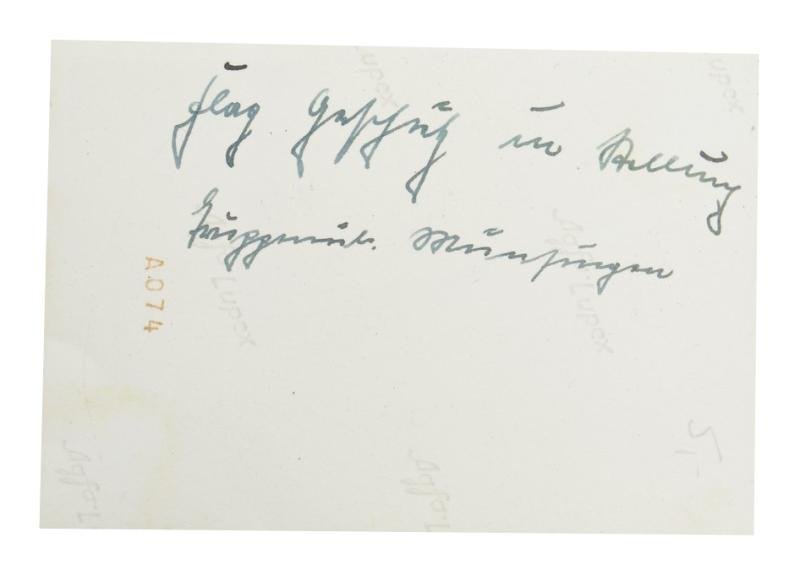 Flag Geschütz in Stellung
Truppenüb. Münsingen
A074
Agfa-Lupex
Lupex
Lupex
Agfa-Lupex
Agfa-L
Agfa-L
5,-